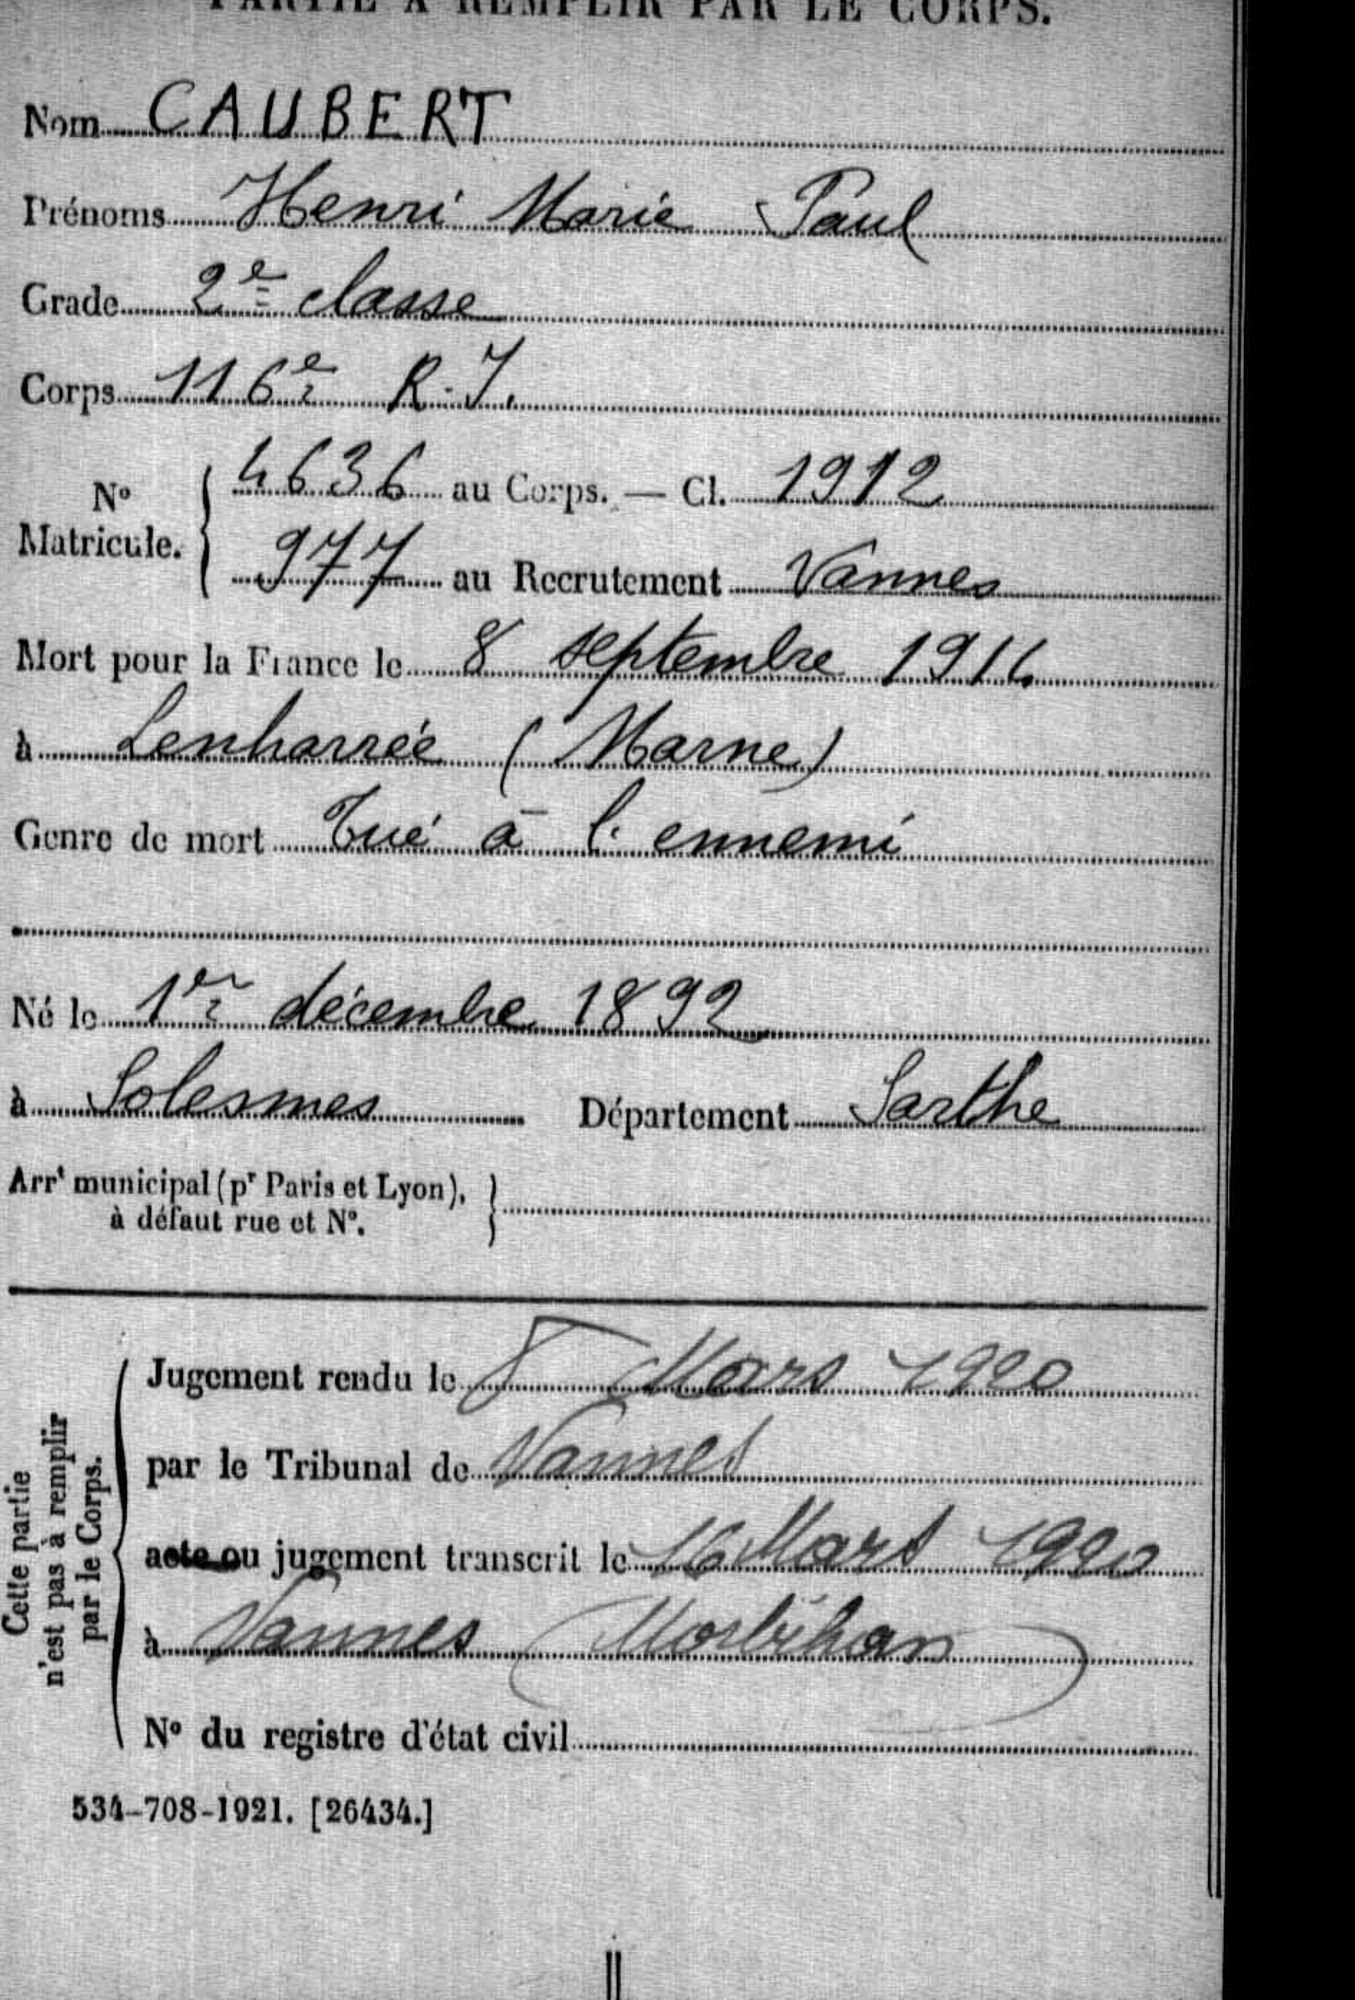 PARTIE À REMPLIR PAR LE CORPS.
Nom CAUBERT
Prénoms Henri Marie Paul
Grade 2e classe
Corps 116e R.I.
No Matricule. { 4636 au Corps. — Cl. 1912
977 au Recrutement Vannes
Mort pour la France le 8 septembre 1914
à Lenharrée (Marne)
Genre de mort Tué à l'ennemi
Né le 1er décembre 1892
à Solesmes Département Sarthe
Arrt municipal (pr Paris et Lyon),
à défaut rue et No.
Cette partie
n'est pas à remplir
par le Corps.
Jugement rendu le 8 Mars 1920
par le Tribunal de Vannes
acte ou jugement transcrit le 16 Mars 1920
à Vannes (Morbihan)
No du registre d'état civil
534-708-1921. [26434.]